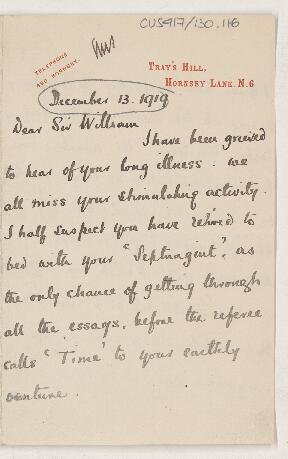 CUS417/130.116
Ans
TELEPHONE
TRAY'S HILL,
HORNSEY LANE. N.6
December 13. 1919
Dear Sir William
I have been grieved
to hear of your long illness. We
all miss your stimulating activity.
I half suspect you have retired to
bed with your "Septuagint", as
the only chance of getting through
all the essays, before the referee
calls "Time" to your earthly
venture.